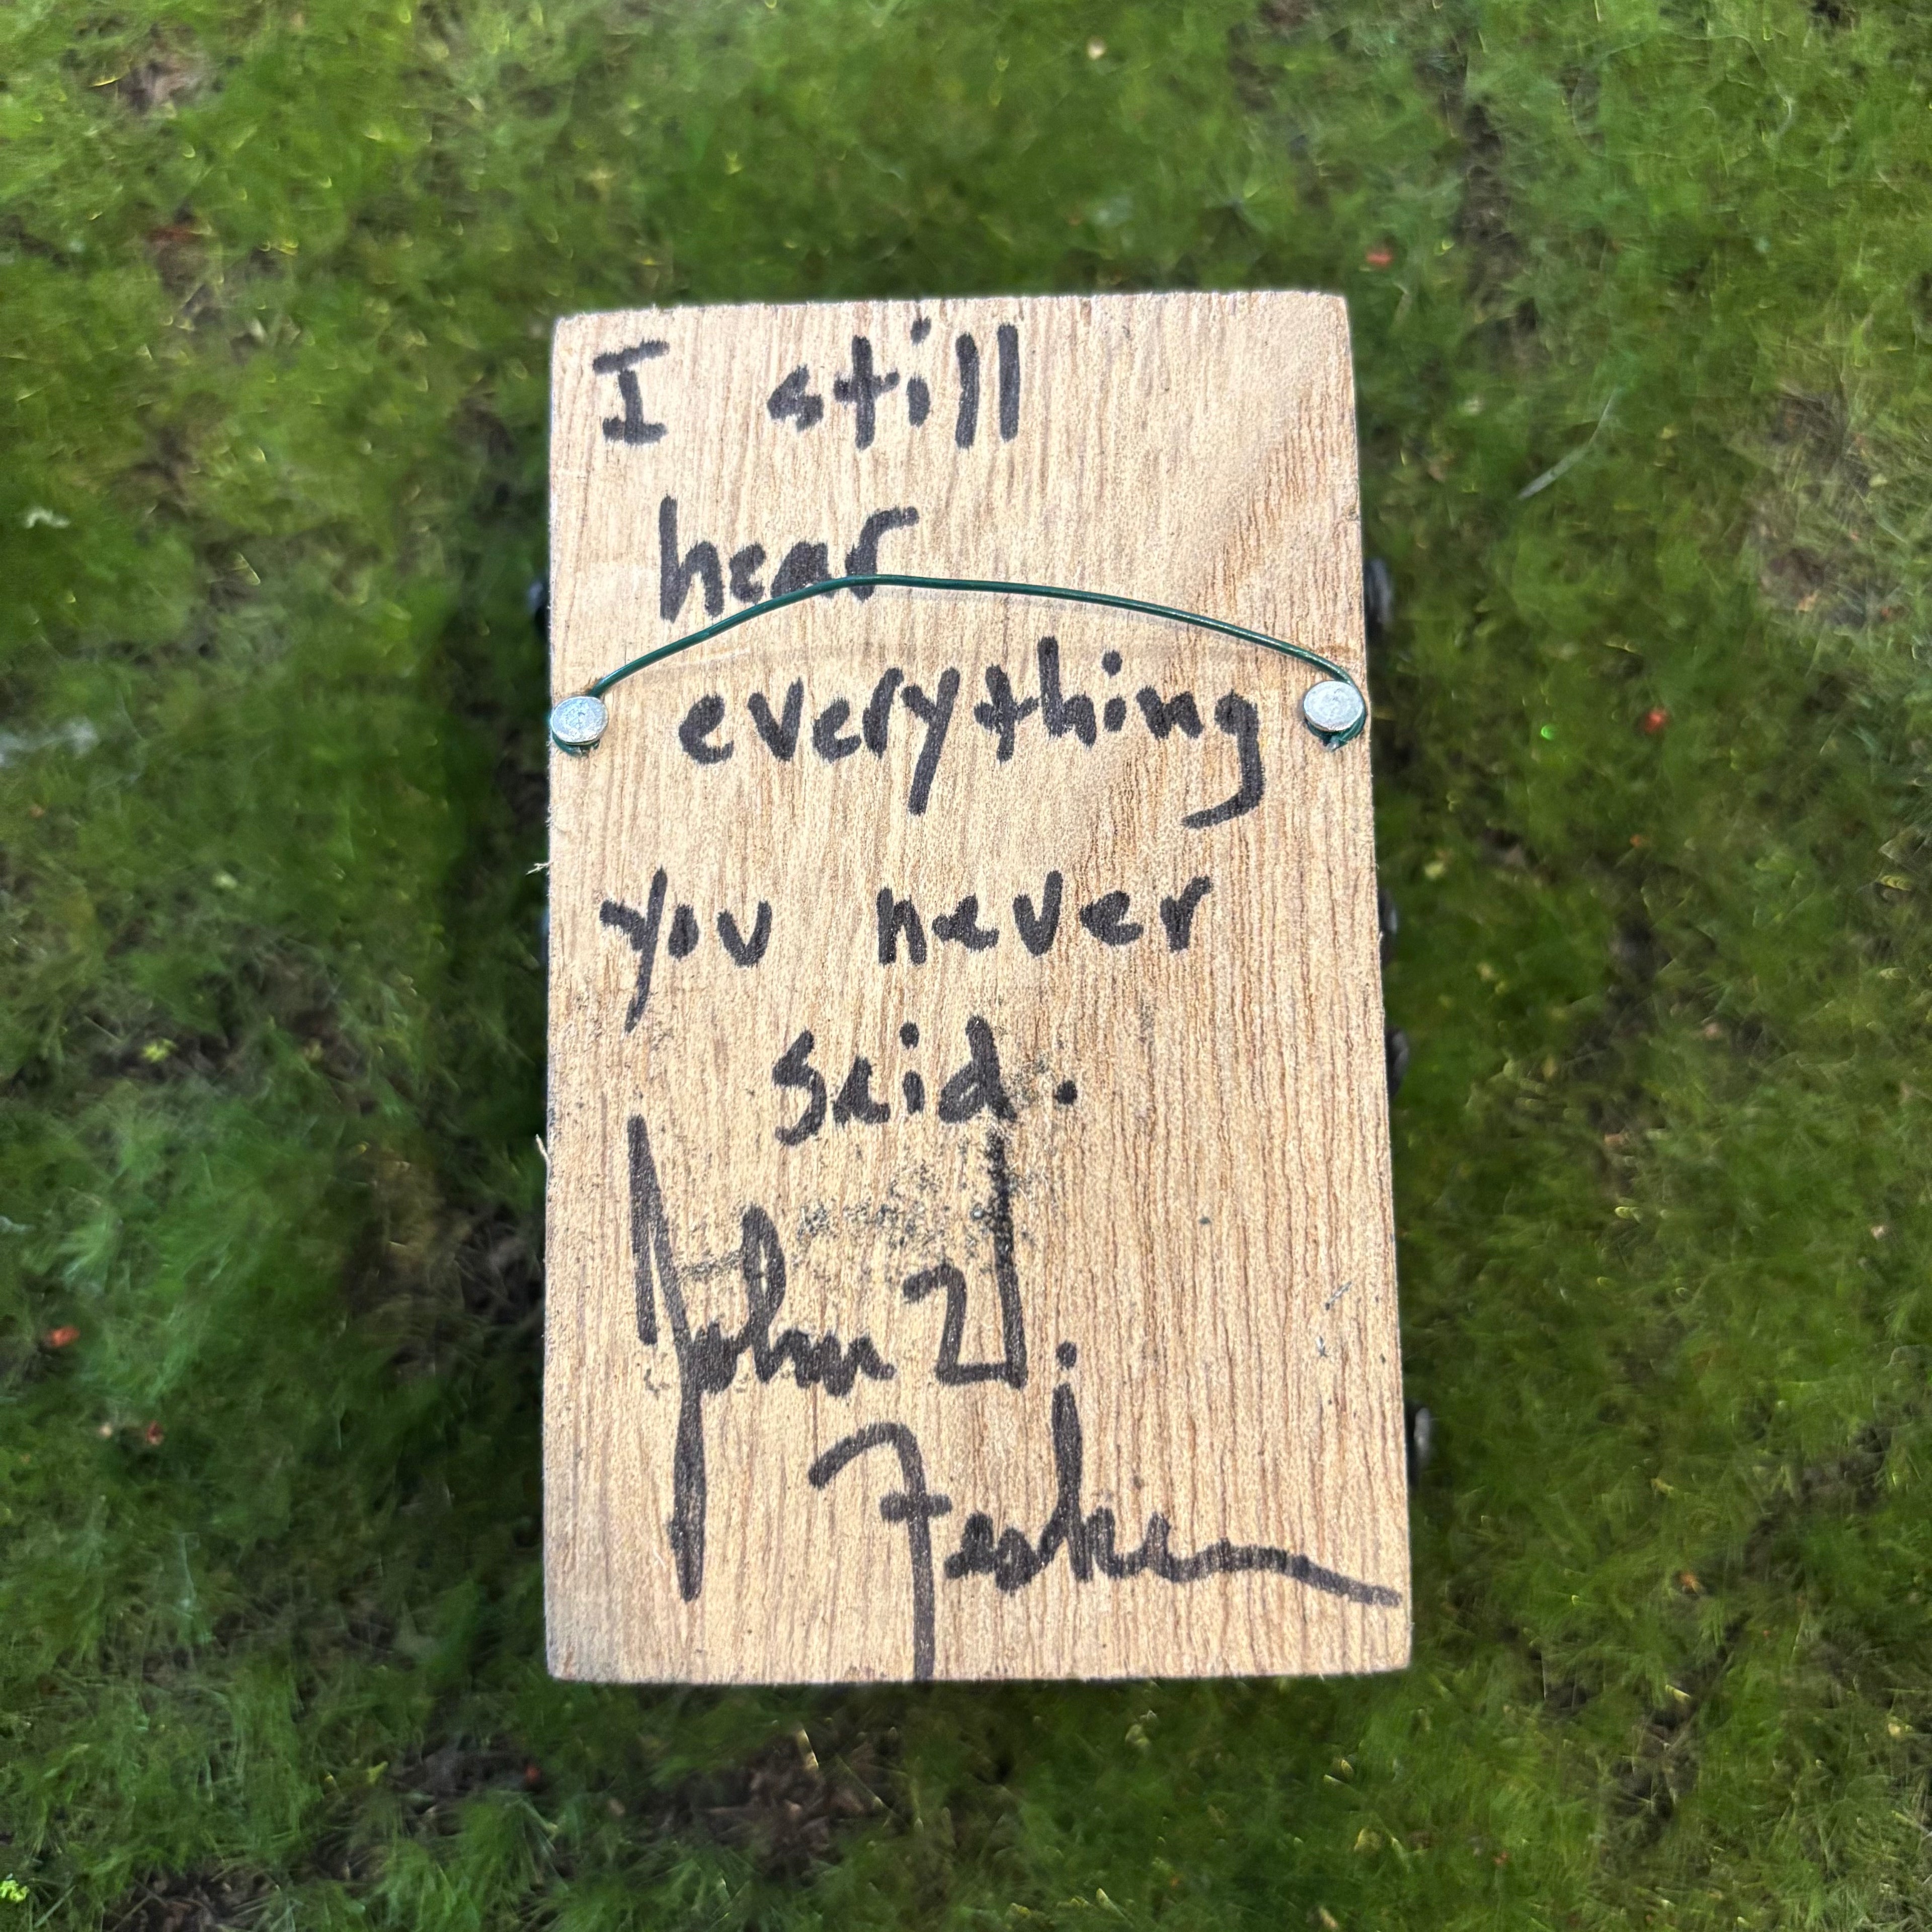 I still
hear
everything
you never
said.
John